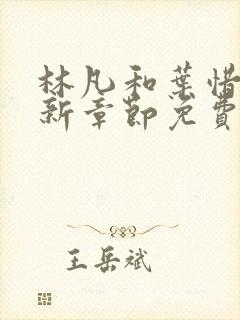 林凡和葉惜
新章節免費
王岳斌